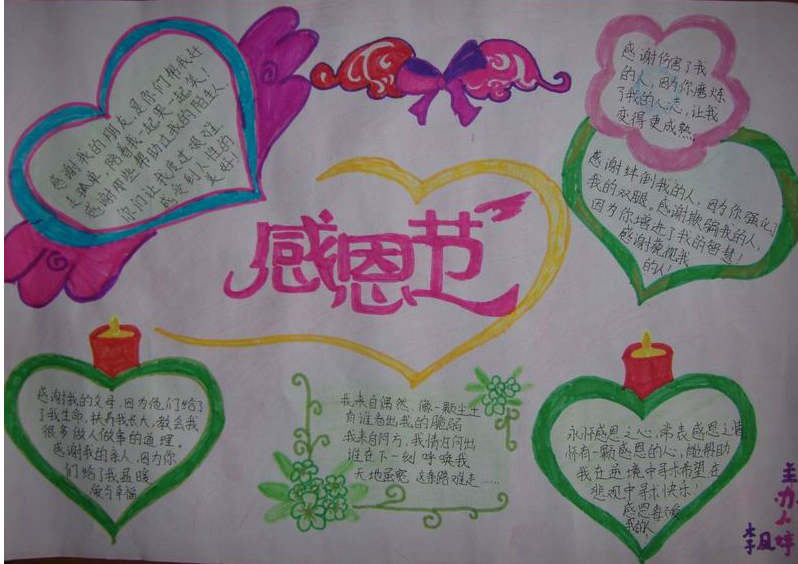 感谢我的朋友,是你们帮我赶
走孤单,陪着我一起哭一起笑!
感谢那些帮助过我的陌生人,
你们让我度过艰难
感受到人性的
美好!
感恩节
感谢伤害了我
的人,因为你磨炼
了我的心志,让我
变得更成熟。
感谢绊倒我的人,因为你强化了
我的双腿。感谢欺骗我的人,
因为你增进了我的智慧!
感谢藐视我
的人!
感谢我的父母,因为他们给了
了我生命,抚养我长大,教会我
很多做人做事的道理。
感谢我的亲人,因为你
们给了我温暖
与幸福
我来自偶然,像一颗尘土
有谁看出我的脆弱
我来自何方,我情归何处
谁在下一刻呼唤我
天地虽宽,这条路难走……
永怀感恩之心,常表感恩之情
怀有一颗感恩的心,能帮助
我在逆境中寻求希望在
悲观中寻求快乐,
感恩每
我的人
主办人
李凤婷